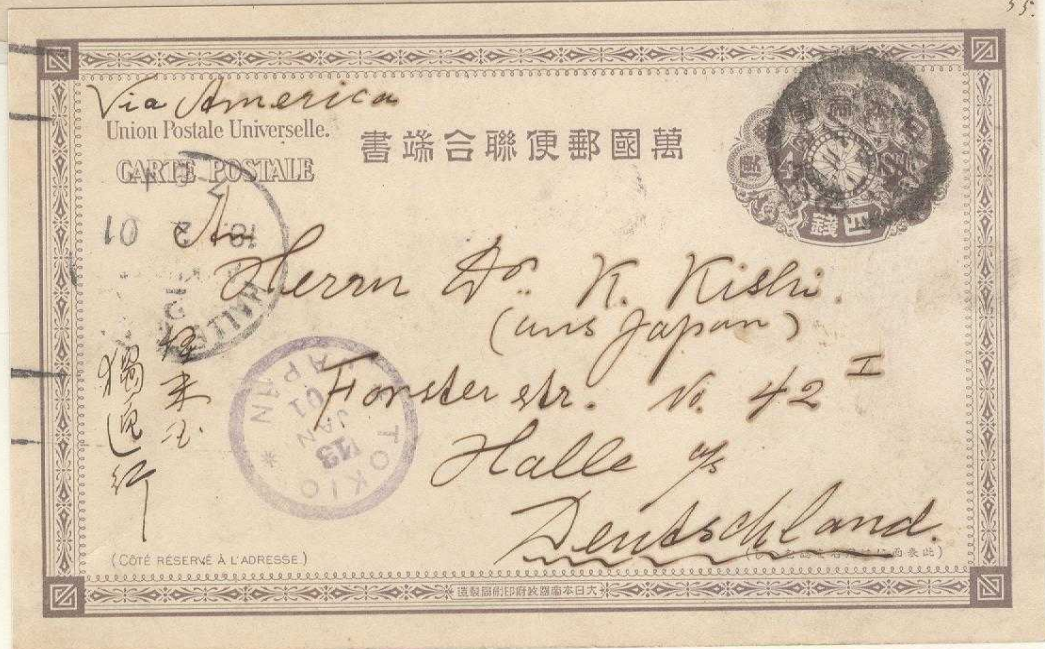 35.
Via America
Union Postale Universelle.
萬國郵便聯合端書
CARTE POSTALE
四錢
An
Herrn Dr. K. Kishi.
(aus Japan)
Forsterstr. No. 42 I
Halle a/s
Deutschland.
TOKIO
13
JAN
01
JAPAN
HALLE
2 01
經米國
獨逸行
(CÔTÉ RÉSERVÉ À L'ADRESSE.)
大日本帝國政府印刷局製造